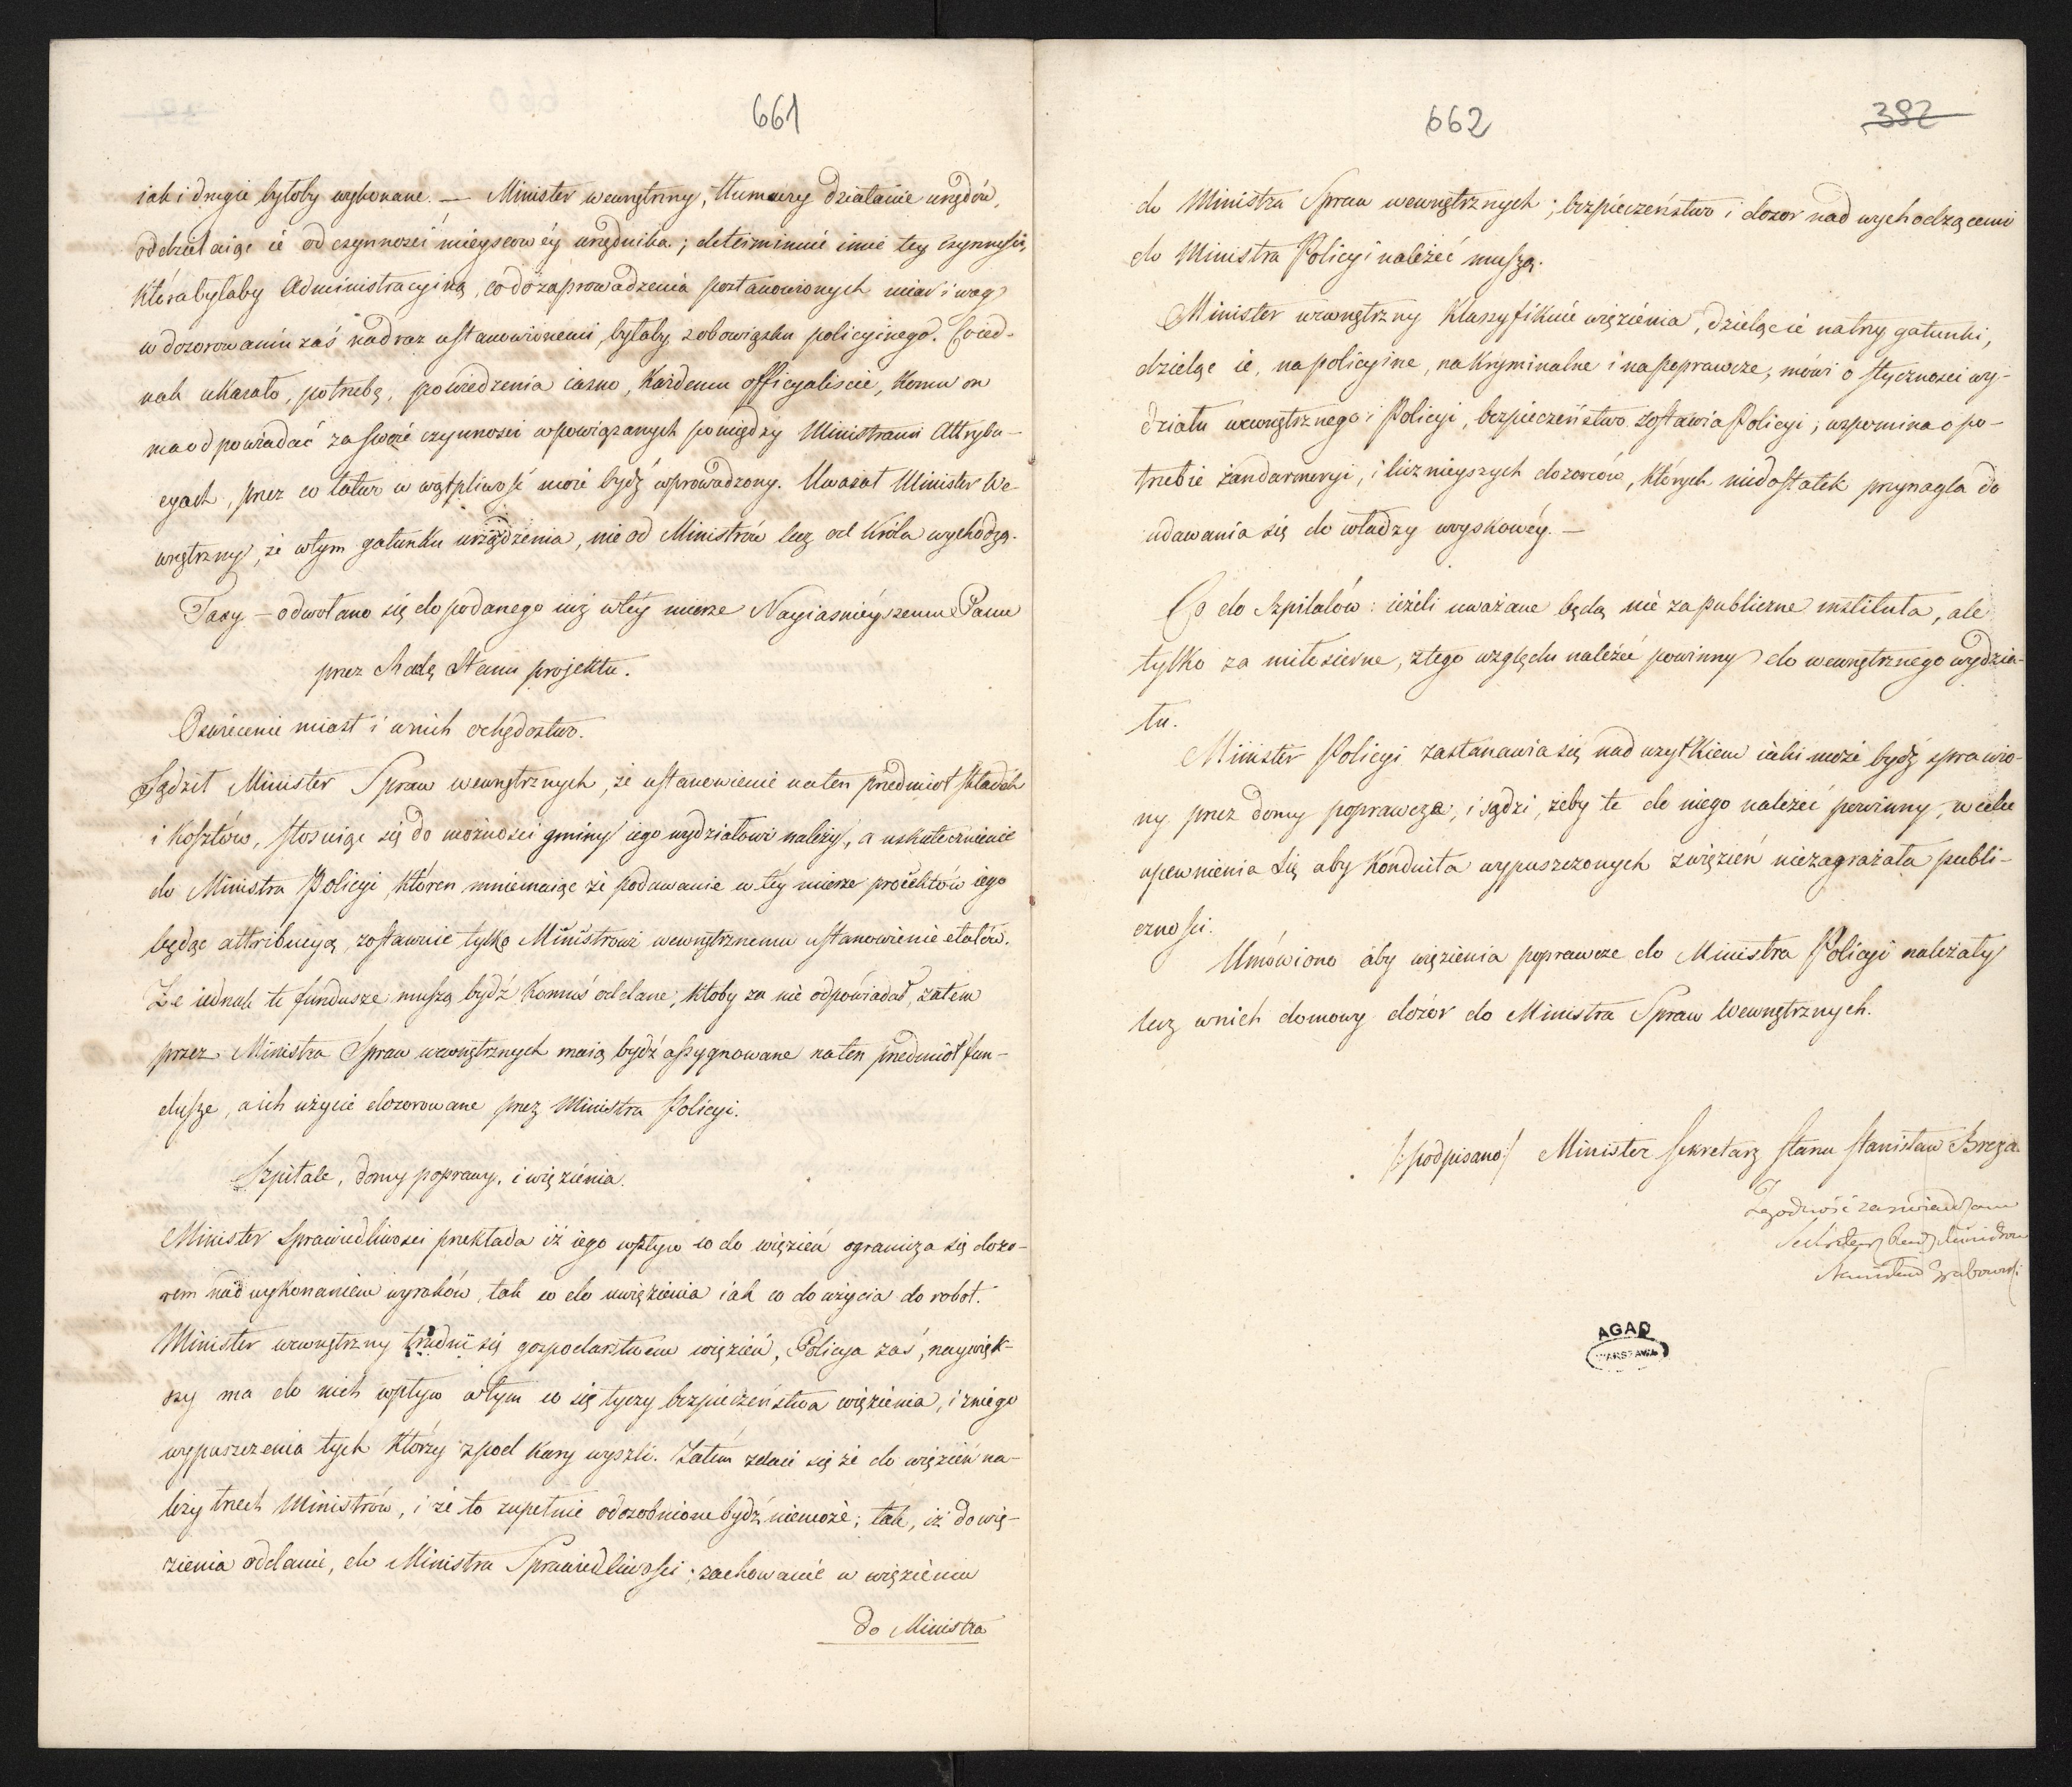 661
iak i drugie byłoby wykonane. — Minister wewnętrzny, tłumaczy działanie urzędów,
oddzielaiąc ie od czynności mieyscowéy urzędnika; determinuie imie tey czynności,
któraby byłaby Administracyiną, co do zaprowadzenia postanowionych miar i wag
w dozorowaniu zaś nad raz ustanowionemi, byłaby z obowiązku policyinego. Co ied-
nak ukazało, potrzebę, powiedzenia iasno, każdemu officyaliscie, komu on
ma odpowiadać za swoie czynności w powiązanych pomiędzy Ministrami Attrybu-
cyach, przez co łatwo w wątpliwość może bydź wprowadzony. Uważał Minister We-
wnętrzny, że w tym gatunku urządzenia, nie od Ministrów lecz od Króla wychodzą.
Taxy — odwołano się do podanego iuż w téy mierze Nayiaśnieyszemu Panu
przez Radę Stanu projektu.
Oswiecenie miast i w nich ochędostwo.
Sądził Minister Spraw wewnętrznych, że ustanowienie na ten przedmiot składek
i kosztów, stosuiąc się do możności gminy iego wydziałowi należy, a uskutecznienie
do Ministra Policyi, któren mniemaiąc że podawanie w téy mierze proiektów iego
będąc attribucyą, zostawuie tylko Ministrowi wewnętrznemu ustanowienie etatów.
Że iednak te fundusze muszą bydź komuś oddane, ktoby za nie odpowiadał, zatem
przez Ministra Spraw wewnętrznych maią bydź assygnowane na ten przedmiot fun-
dusze, a ich użycie dozorowane przez Ministra Policyi.
Szpitale, domy poprawy, i więzienia.
Minister Sprawiedliwosci przekłada iż iego wpływ co do więzień ogranicza się dozo-
rem nad wykonaniem wyroków, tak co do uwięzienia iak co do użycia do robot.
Minister wewnętrzny trudni się gospodarstwem więzień, Policya zaś, naywięk-
szy ma do nich wpływ w tym co się tyczy bezpieczeństwa więzienia, i z niego
wypuszczenia tych którzy z pod kary wyszli. Zatém zdaie się że do więzień na-
leży trzech Ministrów, i że to zupełnie odosobnione bydź niemoże; tak, iż do wię-
zienia oddanie, do Ministra Sprawiedliwości; zachowanie w więzieniu
do Ministra
662
382
do Ministra Spraw wewnętrznych; bezpieczeństwo i dozor nad wychodzącemi
do Ministra Policyi należeć muszą.
Minister wewnętrzny klassyfikuie więzienia, dzieląc ie na trzy gatunki,
dzieląc ie, na policyine, na kryminalne i na poprawcze, mówi o styczności wy-
działu wewnętrznego i Policyi, bezpieczeństwo zostawia Policyi; wspomina o po-
trzebie żandarmeryi, i licznieyszych dozorców, których niedostatek przynagla do
udawania się do władzy woyskowéy. —
Co do Szpitalów: ieżeli uważane będą nie za publiczne instituta, ale
tylko za miłosierne, z tego względu należeć powinny do wewnętrznego wydzia-
łu.
Minister Policyi zastanawia się nad użytkiem iaki może bydź sprawio-
ny przez domy poprawcze, i sądzi, żeby te do niego należeć powinny, w celu
upewnienia się aby konduita wypuszczonych z więzień niezagrażała publi-
czności.
Umówiono aby więzienia poprawcze do Ministra Policyi należały
lecz w nich domowy dozór do Ministra Spraw Wewnętrznych.
/:podpisano:/ Minister Sekretarz Stanu Stanisław Breza
Zgodność zaświadczam
Sekretarz Rady Ministrów
Stanisław Grabowski
AGAD
WARSZAWA